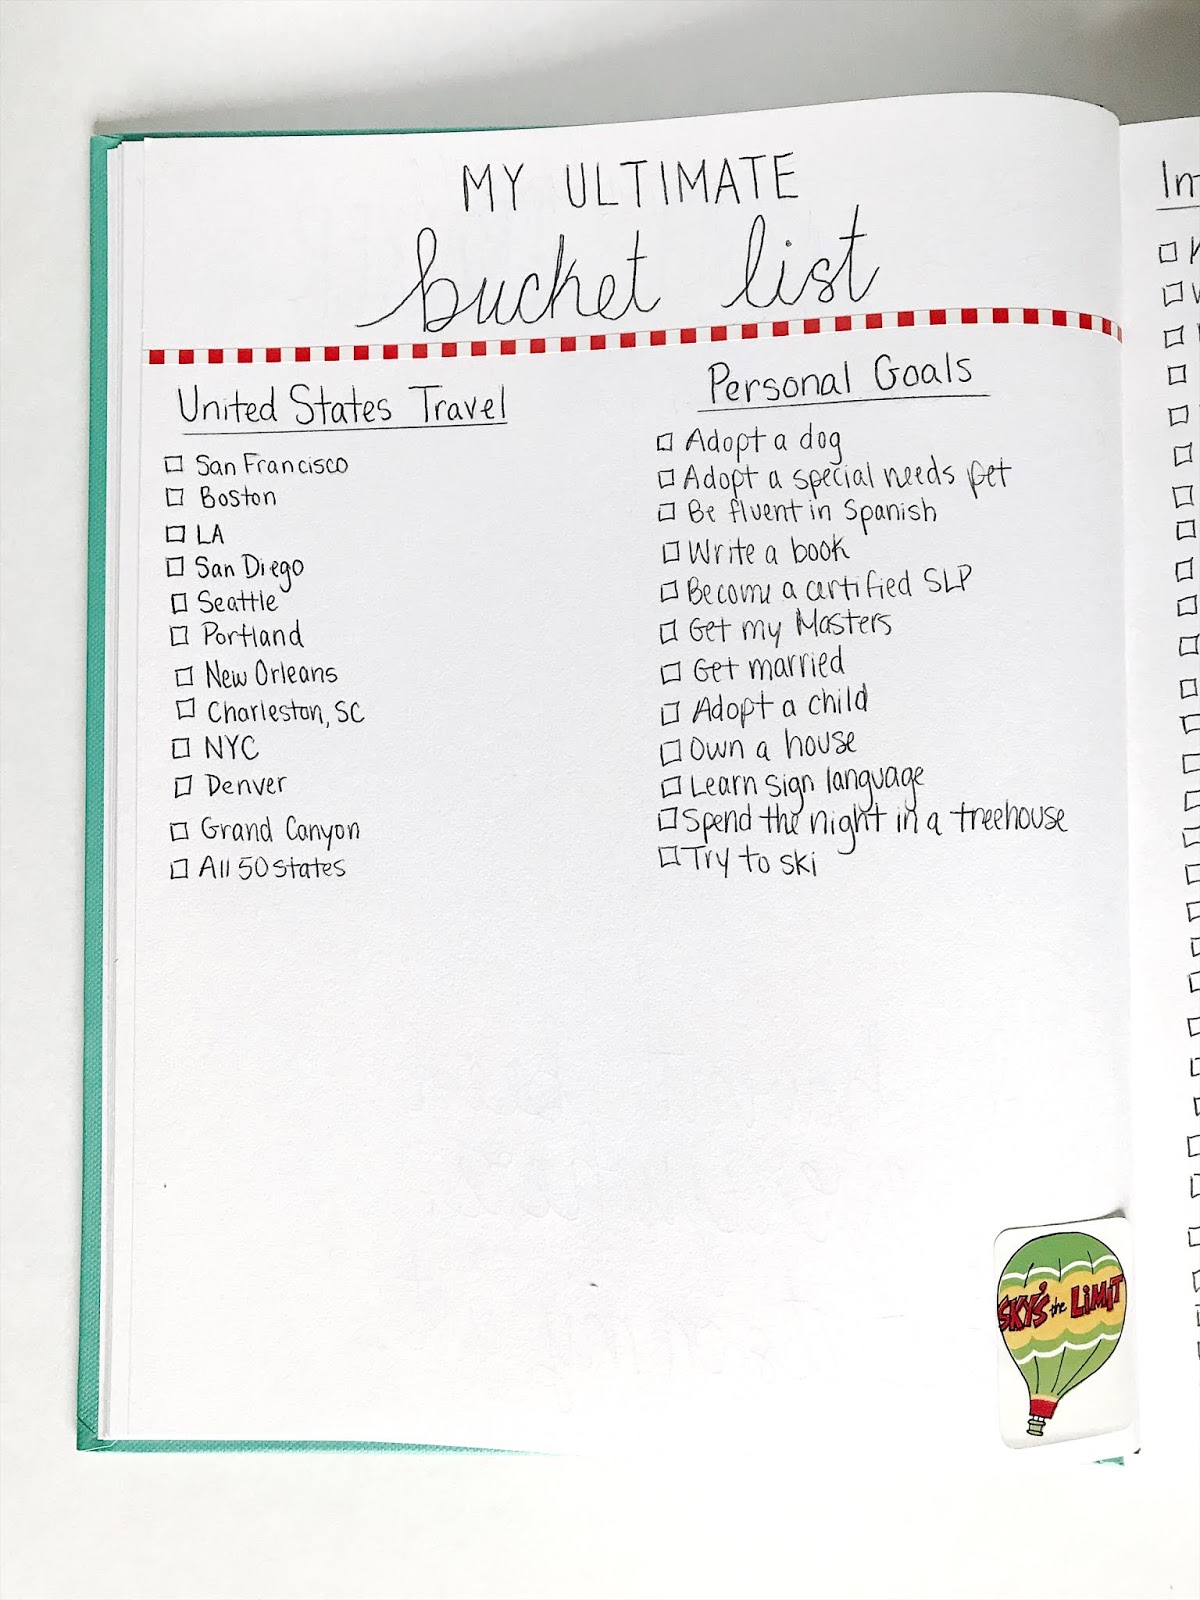 MY ULTIMATE
bucket list
United States Travel
San Francisco
Boston
LA
San Diego
Seattle
Portland
New Orleans
Charleston, SC
NYC
Denver
Grand Canyon
All 50 states
Personal Goals
Adopt a dog
Adopt a special needs pet
Be fluent in Spanish
Write a book
Become a certified SLP
Get my Masters
Get married
Adopt a child
Own a house
Learn sign language
Spend the night in a treehouse
Try to ski
SKY'S the LiMiT